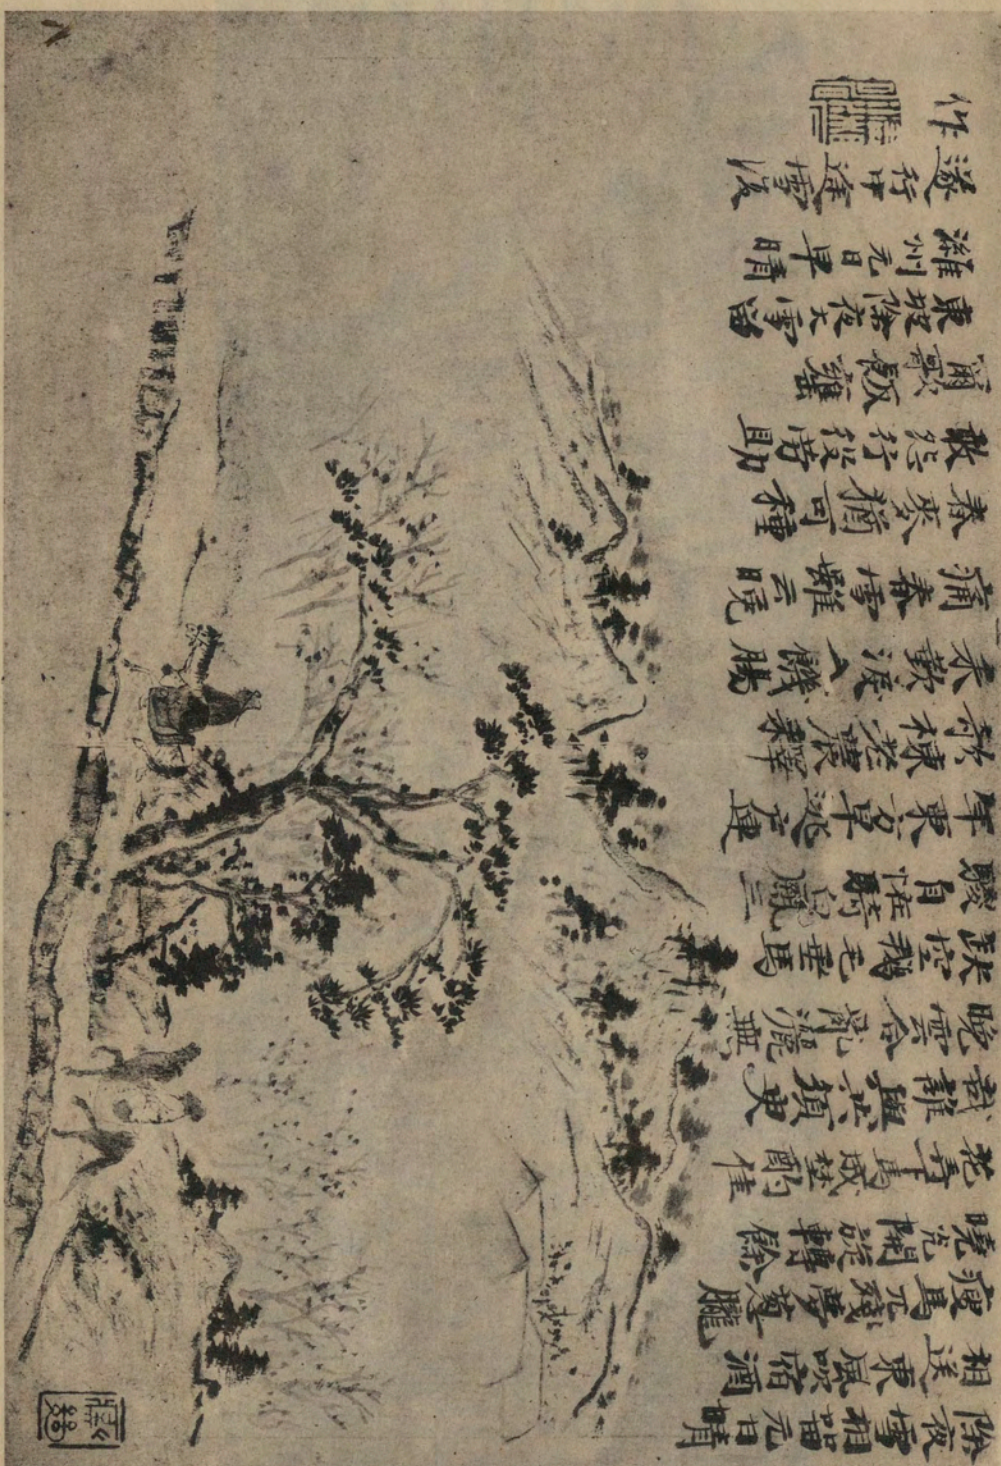 除夜雪相留元日晴
相送東風吹宿酒
瘦馬兀殘夢葱曨
曉光開旋轉餘
花弄下馬成埜酌佳
哉誰與共須臾
晚雲合亂灑無
缺空鵝毛垂馬
騣自怪騎白鳳三
年東方旱逃戶連
欹棟老農釋
耒歎淚入飢腸
痛春雪雖云晚
春麥猶可種
敢怨行役勞助
爾歌飯甕
東坡除夜大雪留
濰州元日早晴
遂行中途雪復
作